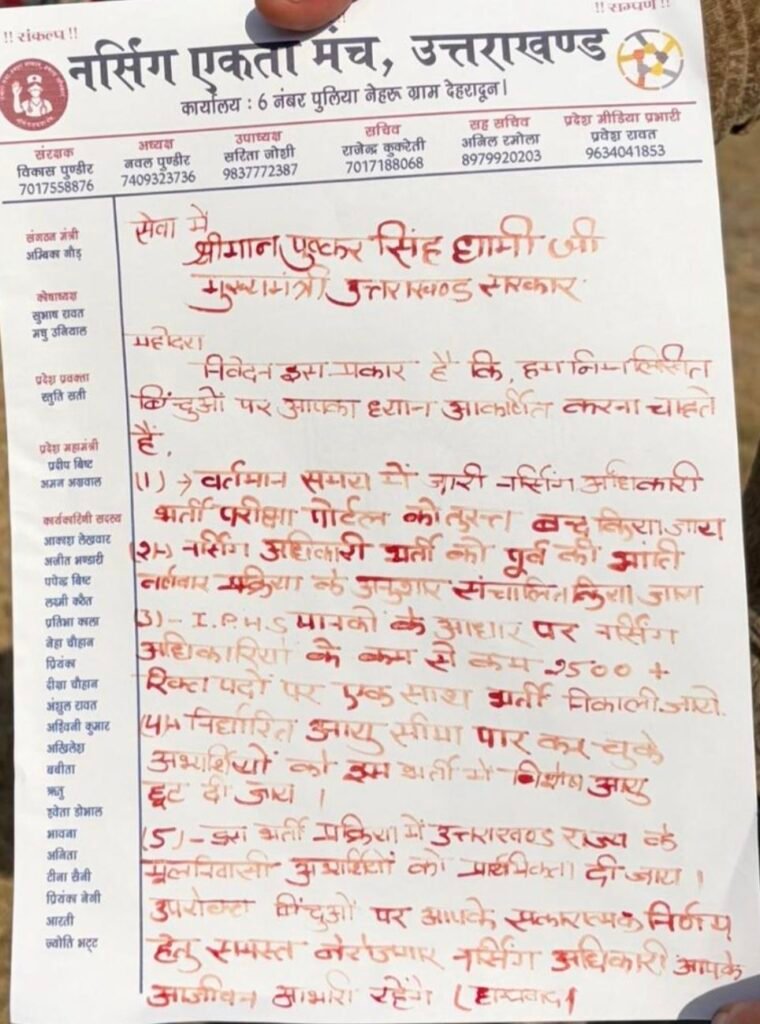 !! संकल्प !!
!! समर्पण !!
नर्सिंग एकता मंच, उत्तराखण्ड
कार्यालय : 6 नंबर पुलिया नेहरू ग्राम देहरादून।
संरक्षक
विकास पुण्डीर
7017558876
अध्यक्ष
नवल पुण्डीर
7409323736
उपाध्यक्ष
सरिता जोशी
9837772387
सचिव
राजेन्द्र कुकरेती
7017188068
सह सचिव
अनिल रमोला
8979920203
प्रदेश मीडिया प्रभारी
प्रवेश रावत
9634041853
संगठन मंत्री
अम्बिका गौड़
कोषाध्यक्ष
सुभाष रावत
मधु उनियाल
प्रदेश प्रवक्ता
स्तुति सती
प्रदेश महामंत्री
प्रदीप बिष्ट
अमन अग्रवाल
कार्यकारिणी सदस्य
आकाश लेखवार
अजीत भण्डारी
पपेन्द्र बिष्ट
लक्ष्मी
प्रतिभा काला
नेहा चौहान
प्रियंका
दीक्षा चौहान
अंशुल रावत
अश्विनी कुमार
अखिलेश
बबीता
ऋतु
श्वेता डोभाल
भावना
अनिता
टीना सैनी
प्रियंका नेगी
आरती
ज्योति भट्ट
सेवा में
श्रीमान पुष्कर सिंह धामी जी
मुख्यमंत्री उत्तराखण्ड सरकार
महोदय
निवेदन इस प्रकार है कि, हम निम्नलिखित
बिंदुओं पर आपका ध्यान आकर्षित करना चाहते
हैं,
(1) → वर्तमान समय में जारी नर्सिंग अधिकारी
भर्ती परीक्षा पोर्टल को तुरन्त बन्द किया जाय
(2)- नर्सिंग अधिकारी भर्ती को पूर्व की भांति
वर्षवार प्रक्रिया के अनुसार संचालित किया जाय
(3)- I.P.H.S मानकों के आधार पर नर्सिंग
अधिकारियों के कम से कम 2500 +
रिक्त पदों पर एक साथ भर्ती निकाली जाये.
(4)- निर्धारित आयु सीमा पार कर चुके
अभ्यर्थियों को इस भर्ती में विशेष आयु
छूट दी जाय ।
(5)- इस भर्ती प्रक्रिया में उत्तराखण्ड राज्य के
मूलनिवासी अभ्यर्थियों को प्राथमिकता दी जाय ।
उपरोक्त बिंदुओं पर आपके सकारात्मक निर्णय
हेतु समस्त बेरोजगार नर्सिंग अधिकारी आपके
आजीवन आभारी रहेंगे (धन्यवाद)